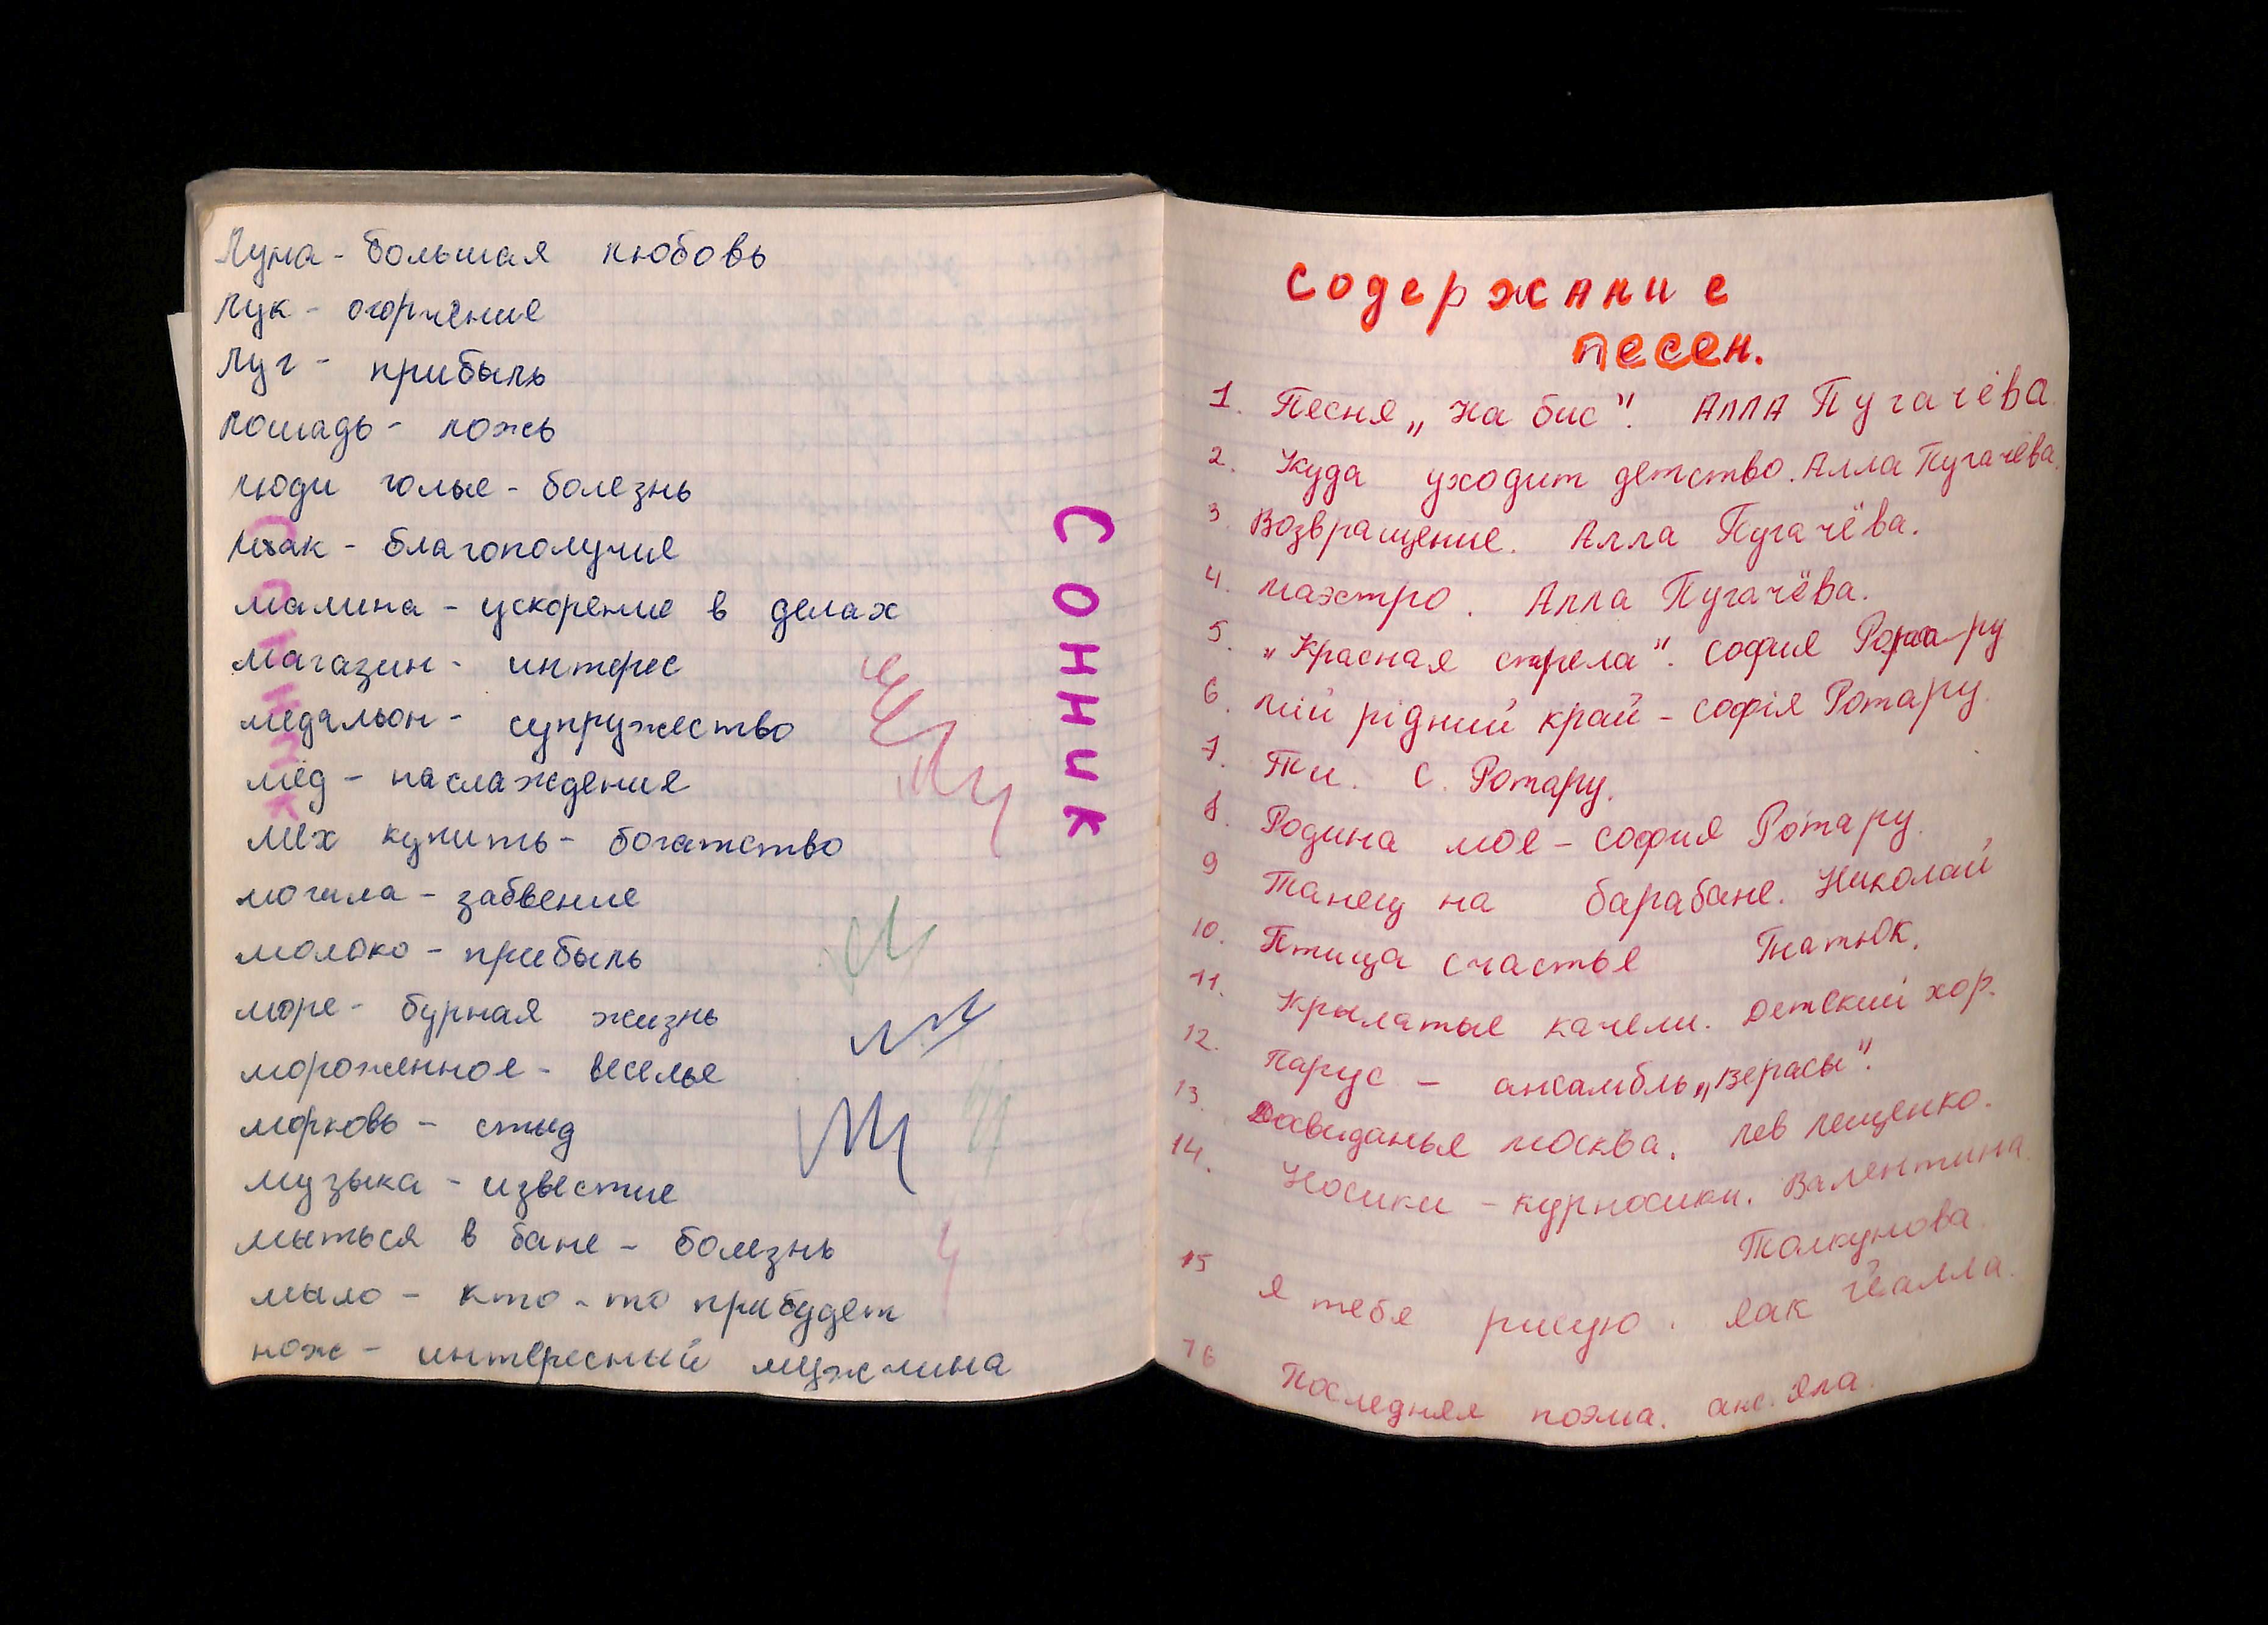 Луна - большая любовь
Лук - огорчение
Луг - прибыль
Лошадь - ложь
люди голые - болезнь
Мак - благополучие
малина - ускорение в делах
магазин - интерес
медальон - супружество
мёд - наслаждение
мех купить - богатство
могила - забвение
молоко - прибыль
море - бурная жизнь
мороженное - веселье
морковь - стыд
музыка - известие
мыться в бане - болезнь
мыло - кто-то прибудет
нож - интересный мужчина
Сонник
Содержание
песен.
1. Песня „На бис". Алла Пугачёва.
2. Куда уходит детство. Алла Пугачёва.
3. Возвращение. Алла Пугачёва.
4. Маэстро. Алла Пугачёва.
5. „Красная стрела". София Ротару
6. Мій рідний край - Софія Ротару.
7. Ти. С. Ротару.
8. Родина моя - София Ротару.
9 Танец на барабане. Николай
10. Птица счастья Гнатюк.
11. Крылатые качели. Детский хор.
12. Парус - ансамбль „Верасы".
13. Досвиданья Москва. Лев Лещенко.
14. Носики - курносики. Валентина
Толкунова.
15 Я тебя рисую. Яак Йоалла.
16 Последняя поэма. анс. Яла.